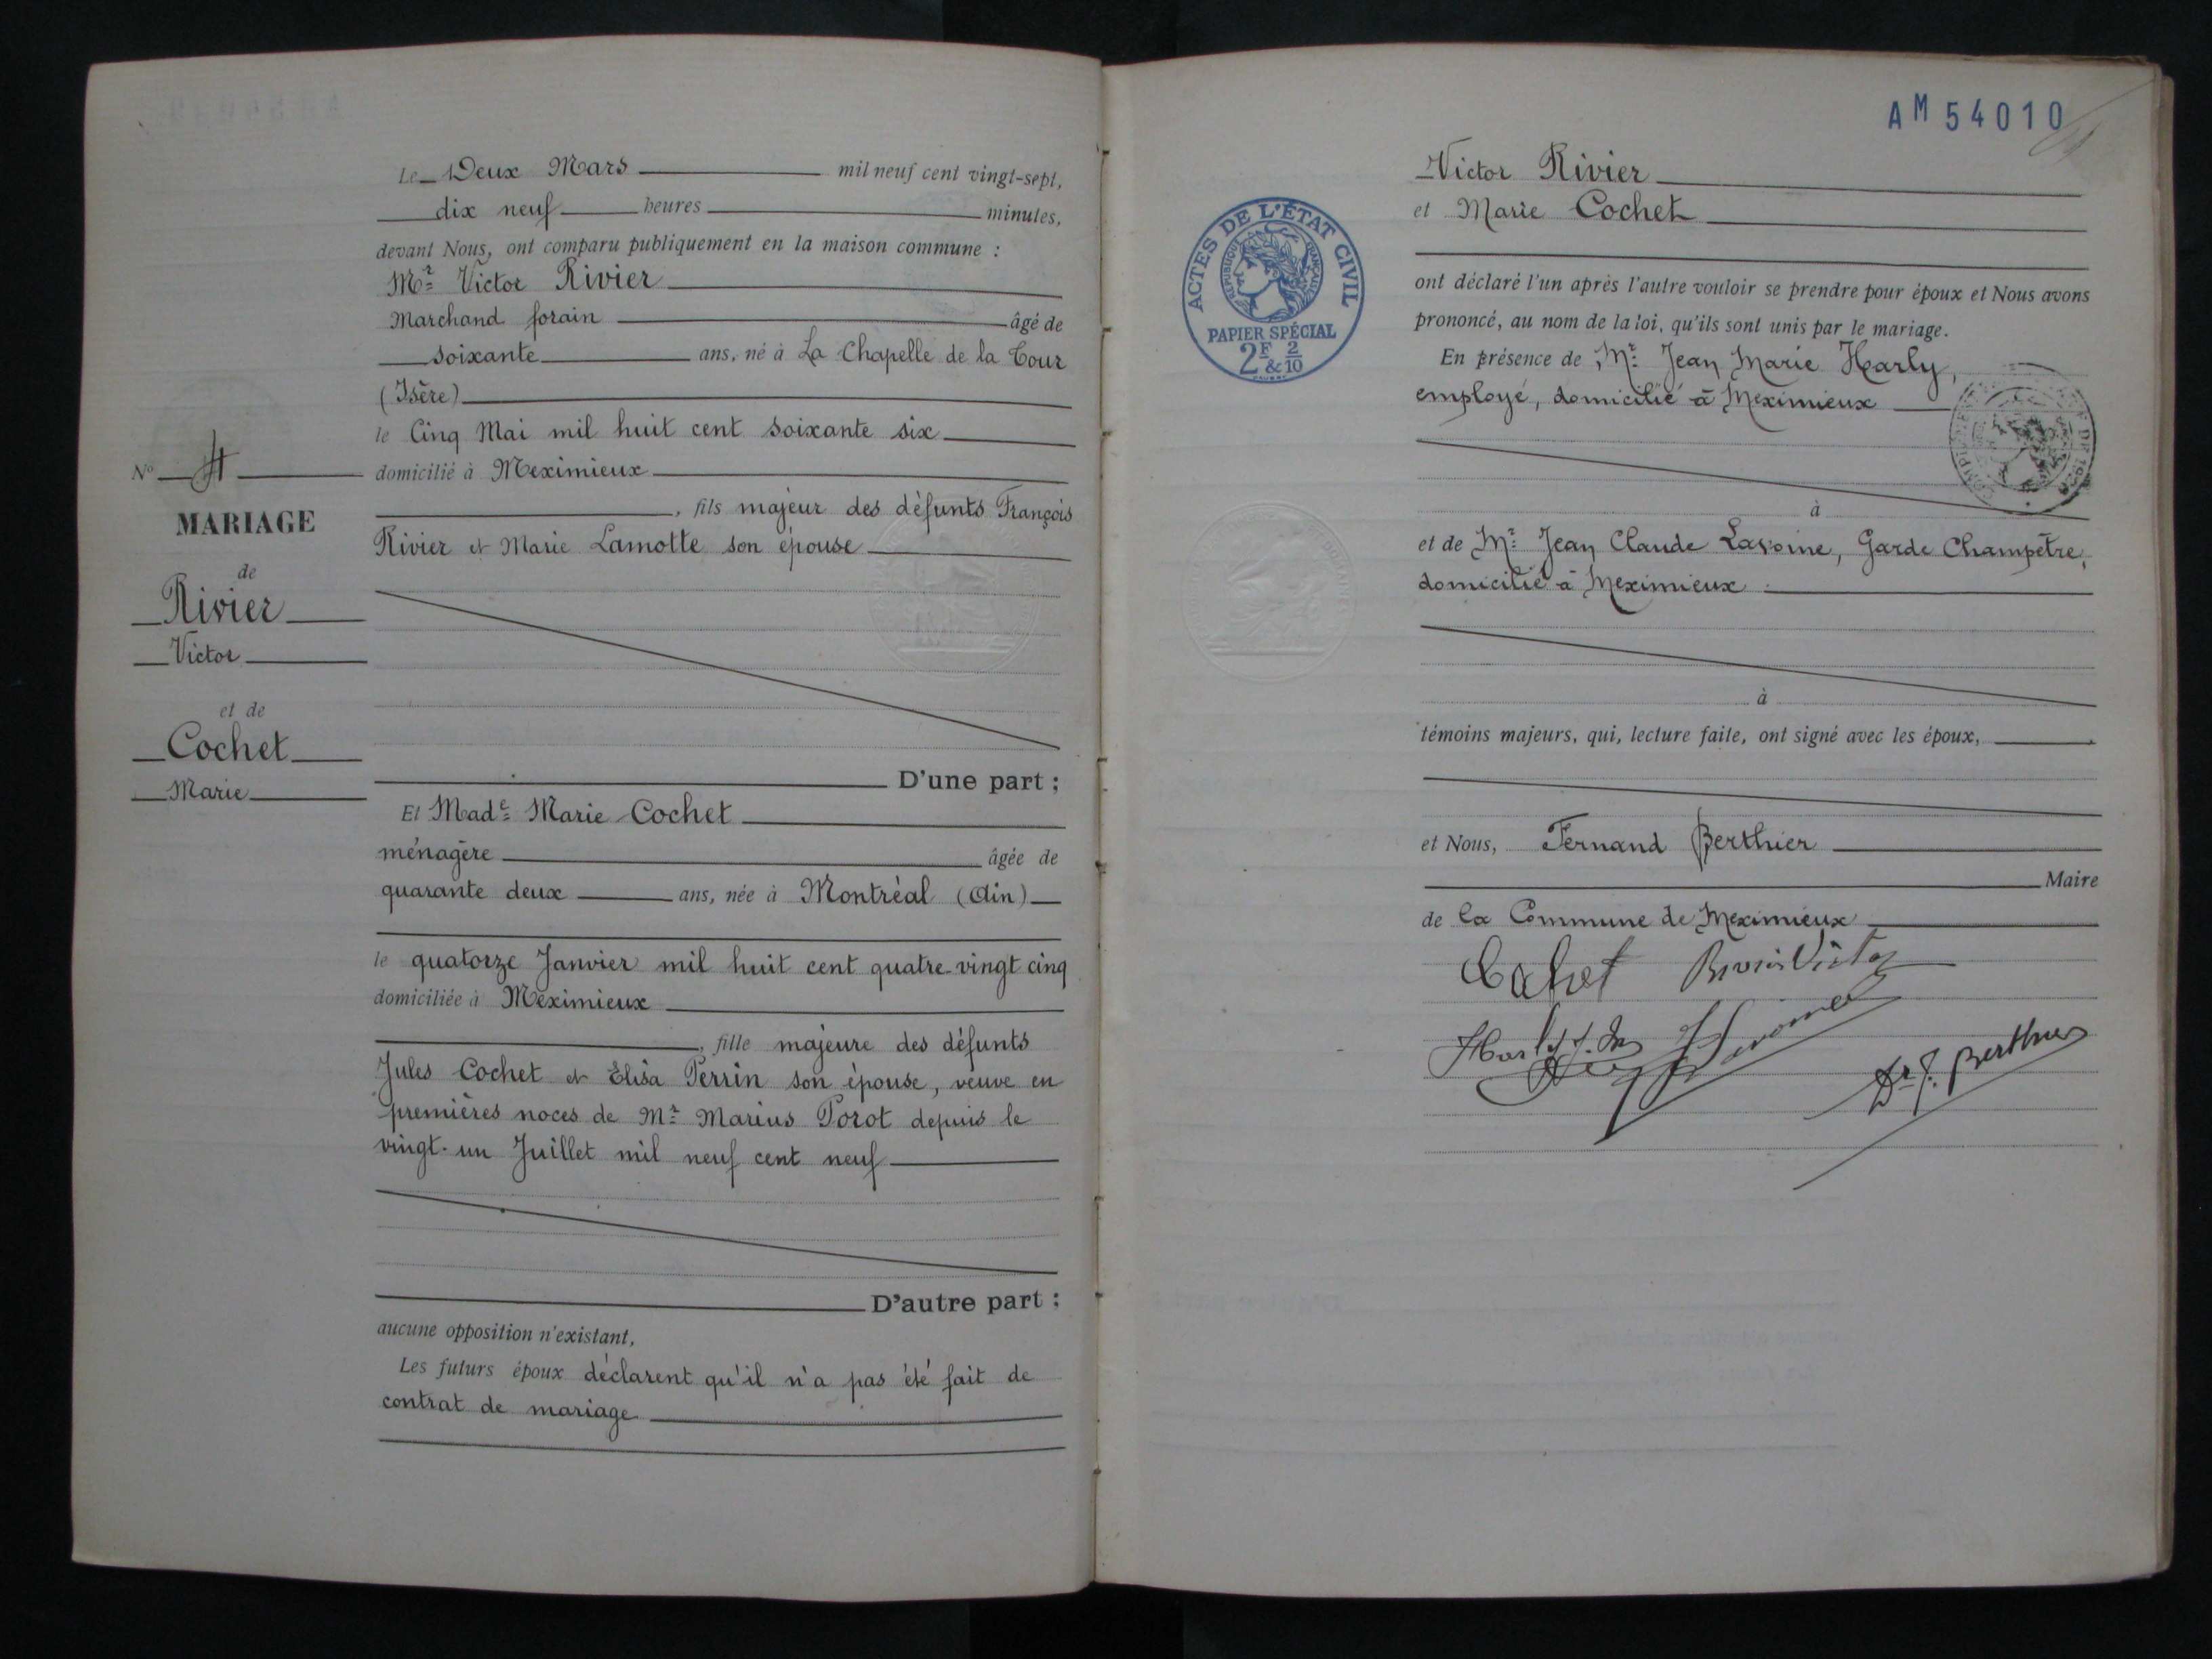 Le Deux Mars mil neuf cent vingt-sept,
dix neuf heures minutes,
devant Nous, ont comparu publiquement en la maison commune :
Mr Victor Rivier
Marchand forain âgé de
soixante ans, né à La Chapelle de la Tour
(Isère)
le Cinq Mai mil huit cent soixante six
domicilié à Meximieux
, fils majeur des défunts François
Rivier et Marie Lamotte son épouse
D'une part ;
Et Made Marie Cochet
ménagère âgée de
quarante deux ans, née à Montréal (Ain)
le quatorze Janvier mil huit cent quatre-vingt cinq
domiciliée à Meximieux
, fille majeure des défunts
Jules Cochet et Elisa Perrin son épouse, veuve en
premières noces de Mr Marius Porot depuis le
vingt-un Juillet mil neuf cent neuf
D'autre part ;
aucune opposition n'existant,
Les futurs époux déclarent qu'il n'a pas été fait de
contrat de mariage
No 4
MARIAGE
de
Rivier
Victor
et de
Cochet
Marie
AM 54010
Victor Rivier
et Marie Cochet
ont déclaré l'un après l'autre vouloir se prendre pour époux et Nous avons
prononcé, au nom de la loi, qu'ils sont unis par le mariage.
En présence de Mr Jean Marie Harly,
employé, domicilié à Meximieux
à
et de Mr Jean Claude Lavoine, Garde Champêtre,
domicilié à Meximieux
à
témoins majeurs, qui, lecture faite, ont signé avec les époux,
et Nous, Fernand Berthier
Maire
de la Commune de Meximieux
Cochet
Harly J. M
Dr F. Berthier
ACTES DE L'ÉTAT CIVIL
RÉPUBLIQUE FRANÇAISE
PAPIER SPÉCIAL
2F & 2/10